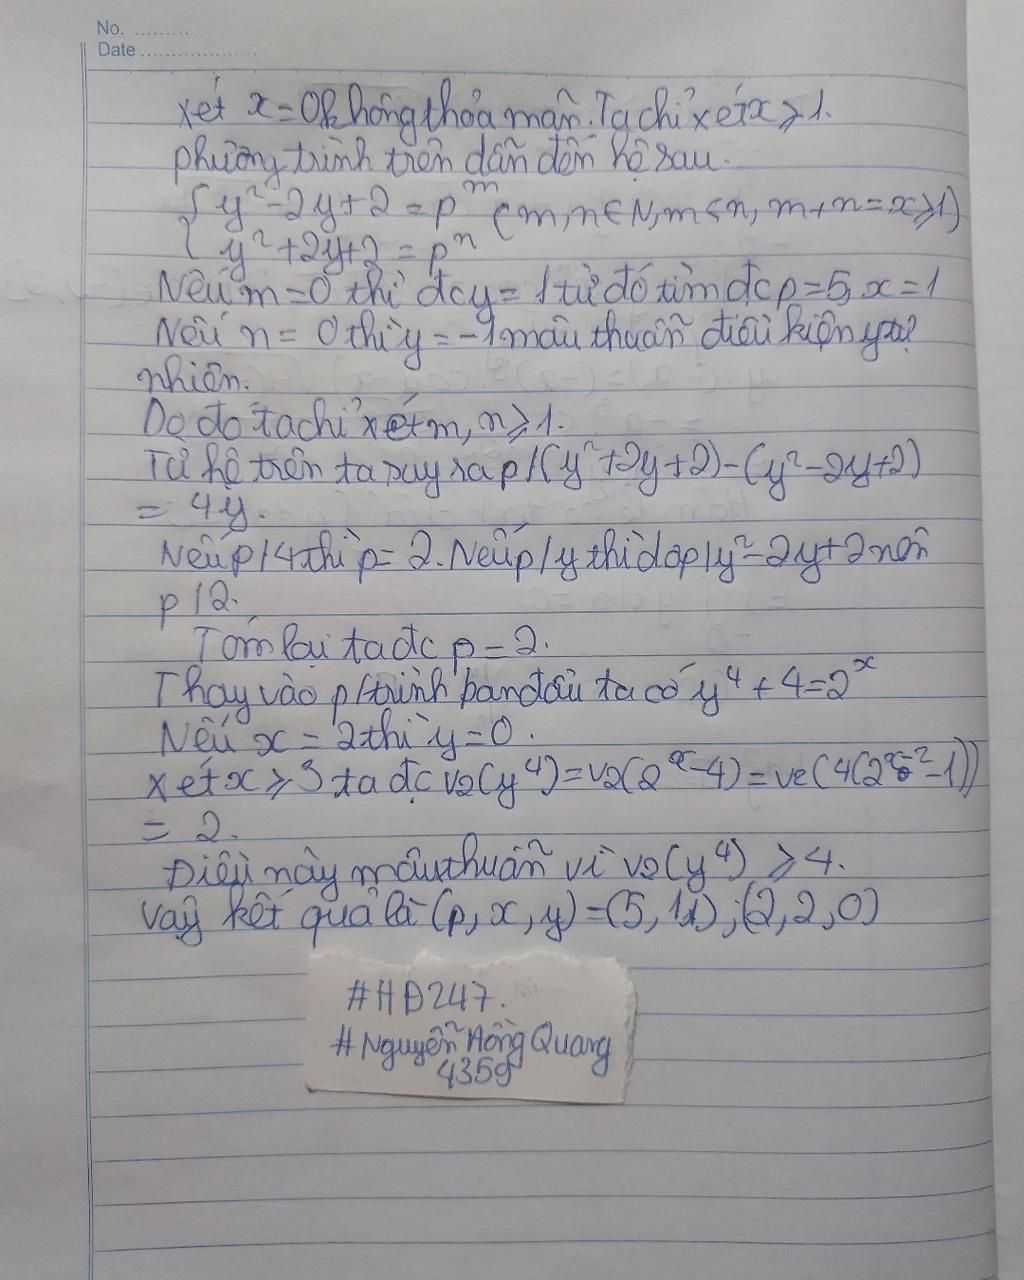 No. .........
Date ...................
xét x = 0 không thỏa mãn. Ta chỉ xét x ⩾ 1.
phương trình trên dẫn đến hệ sau.
{ y² - 2y + 2 = p^m (m, n ∈ N, m < n, m + n = x ⩾ 1)
{ y² + 2y + 2 = p^n
Nếu m = 0 thì đc y = 1 từ đó tìm đc p = 5, x = 1
Nếu n = 0 thì y = -1 mâu thuẫn điều kiện y tự
nhiên.
Do đó ta chỉ xét m, n ⩾ 1.
Từ hệ trên ta suy ra p/(y² + 2y + 2) - (y² - 2y + 2)
= 4y.
Nếu p/4 thì p = 2. Nếu p/y thì do p/y² - 2y + 2 nên
p/2.
Tóm lại ta đc p = 2.
Thay vào p/trình ban đầu ta có y⁴ + 4 = 2^x
Nếu x = 2 thì y = 0.
xét x ⩾ 3 ta đc v2(y⁴) = v2(2^x - 4) = ve(4(2^x-2 - 1))
= 2.
Điều này mâu thuẫn vì v2(y⁴) ⩾ 4.
vậy kết quả là (p, x, y) = (5, 1, 1); (2, 2, 0)
#HĐ247.
#Nguyễn Hồng Quang
4359